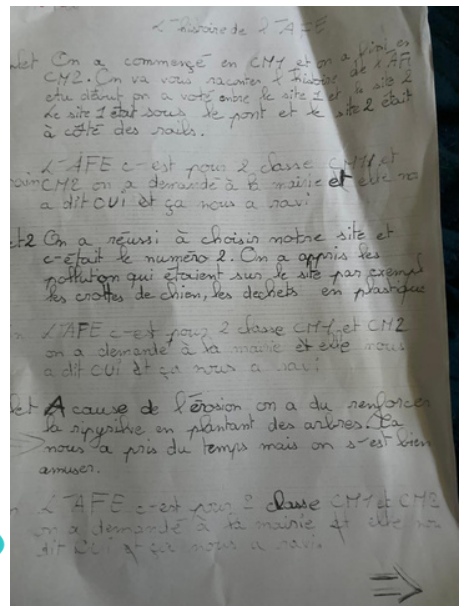 L'histoire de l'AFE
let On a commençé en CM1 et on a fini en
CM2. On va vous raconter l'histoire de l'AFE
au début on a voté entre le site 1 et le site 2
Le site 1 était sous le pont et le site 2 était
à côté des rails.
L'AFE c'est pour 2 classe CM1 et
CM2 on a demandé à la mairie et elle no
a dit OUI et ça nous a ravi
et2 On a réussi à choisir notre site et
c'était le numéro 2. On a appris les
pollution qui étaient sur le site par exempl
les crottes de chien, les dechets en plastique
L'AFE c'est pour 2 classe CM1 et CM2
on a demandé à la mairie et elle nous
a dit OUI et ça nous a ravi
let A cause de l'érosion on a du renforcer
la en plantant des arbres. Ca
nous a pris du temps mais on s'est bien
amuser.
L'AFE c'est pour 2 classe CM1 et CM2
on a demandé à la mairie et elle no
dit OUI et ça nous a ravi.